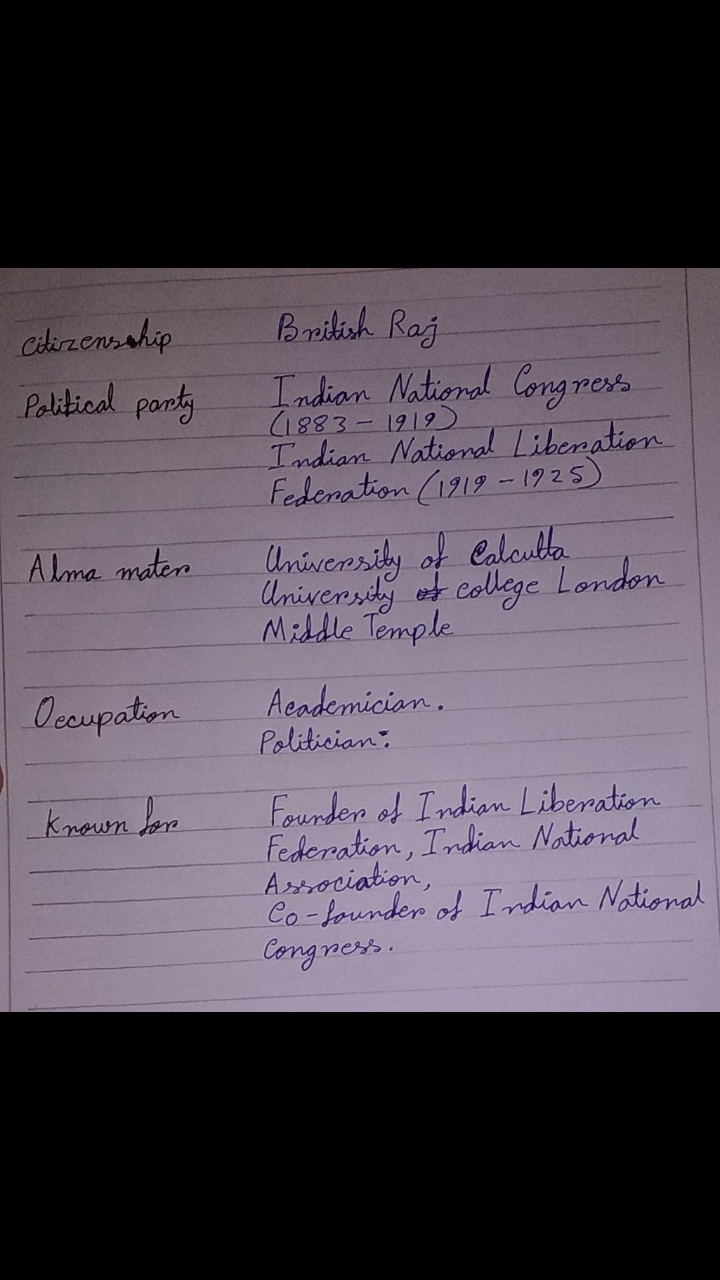 Citizenship British Raj
Political party Indian National Congress
(1883 - 1919)
Indian National Liberation
Federation (1919 - 1925)
Alma mater University of Calcutta
University of college London
Middle Temple
Occupation Academician.
Politician.
Known for Founder of Indian Liberation
Federation, Indian National
Association,
Co-founder of Indian National
Congress.